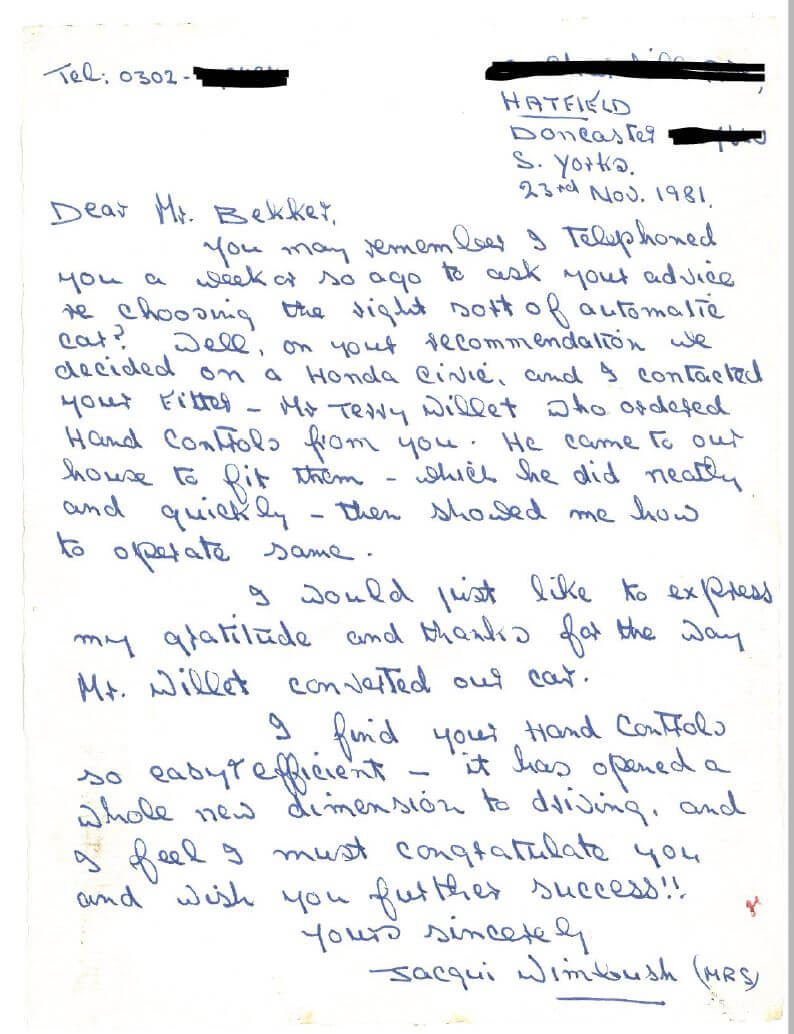 Tel: 0302-
HATFIELD
Doncaster
S. Yorks.
23rd Nov. 1981.
Dear Mr. Bekker,
You may remember I Telephoned
you a week or so ago to ask your advice
re choosing the right sort of automatic
car? Well, on your recommendation we
decided on a Honda Civic, and I contacted
your Fitter - Mr Terry Willet who ordered
Hand Controls from you. He came to our
house to fit them - which he did neatly
and quickly - then showed me how
to operate same.
I would just like to express
my gratitude and thanks for the way
Mr. Willet converted our car.
I find your Hand Controls
so easy + efficient - it has opened a
whole new dimension to driving, and
I feel I must congratulate you
and wish you further success!!
Yours sincerely
Jacqui Wimbush (MRS)